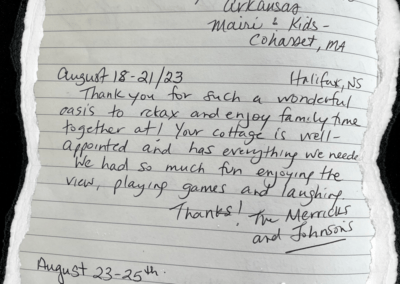 Arkansas
Mairi & Kids -
Cohasset, MA
August 18-21/23 Halifax, NS
Thank you for such a wonderful
oasis to relax and enjoy family time
together at! Your cottage is well-
appointed and has everything we neede
We had so much fun enjoying the
view, playing games and laughing.
Thanks! The Merricks
and Johnsons
August 23-25th.